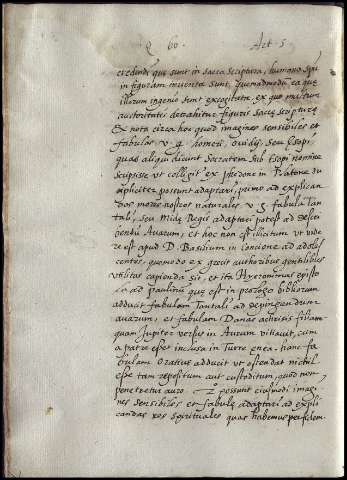 Q 60. Art 5
credendi, quę sunt in sacra scriptura, humano
in figuram inventa sunt, quemadmodū ea quę
illorum ingenio sunt excogitata, ex quo multum
auctoritatis detrahitur figuris sacrę scripturę
Et nota circa hoc quod imagines sensibiles et
fabulas v. g. homeri, ovidij, seu Esopi
quas aliqui dicunt Socratem sub Esopi nomine
scripsisse ut colligit ex phedone in Platone du
pliciter possunt adaptari, primo ad explican
dos mores nostros naturales v. g. fabula Tan
tali, seu Midę Regis adaptari potest ad descri
bendū Avarum, et hoc non est illicitum ut vide
re est apud D. Basilium in Concione ad adoles
centes, quomodo ex grecis authoribus gentilibus
utilitas capienda sit et ita Hyeronimus episto
la ad paulinū que est in prologo bibliorum
adducit fabulam Tantali ad depingendum
avarum, et fabulam Danae acrisis filiam
quam Jupiter versus in Aurum vitiavit, cum
a patre esset inclusa in Turre enea. hanc fa
bulam Oratius adducit ut ostendat nichil
esse tam repositum aut custoditum, quod non
penetretur auro. possunt eiusmodi imagi
nes sensibiles et fabulę adaptari ad expli
candas res spirituales quas habemus per fidem